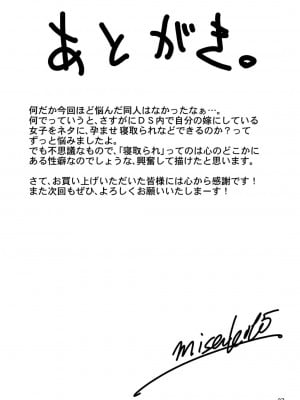 あとがき。
何だか今回ほど悩んだ同人はなかったなぁ…。
何でっていうと、さすがにDS内で自分の嫁にしている
女子をネタに、孕ませ寝取られなどできるのか?って
ずっと悩みましたよ。
でも不思議なもので、「寝取られ」ってのは心のどこかに
ある性癖なのでしょうな、興奮して描けたと思います。
さて、お買い上げいただいた皆様には心から感謝です!
また次回もぜひ、よろしくお願いいたしまーす!